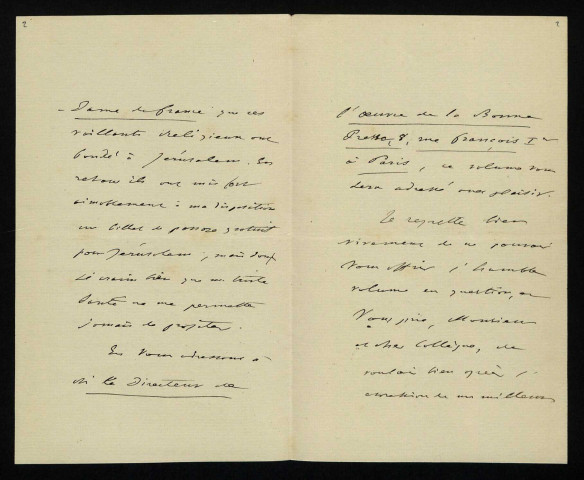 2
- Dame de France que ces
vaillants religieux ont
fondé à Jérusalem. En
retour ils ont mis fort
aimablement à ma disposition
un billet de passage gratuit
pour Jérusalem, mais dont
je crains bien que ma triste
santé ne me permette
jamais de profiter.
En vous adressant à
M. le Directeur de
l'œuvre de la Bonne
Presse, 8, rue François Ier
à Paris, ce volume vous
sera adressé avec plaisir.
Je regrette bien
vivement de ne pouvoir
vous offrir l'humble
volume en question, et
vous prie, Monsieur
et cher Collègue, de
vouloir bien agréer l'
expression de mes meilleurs